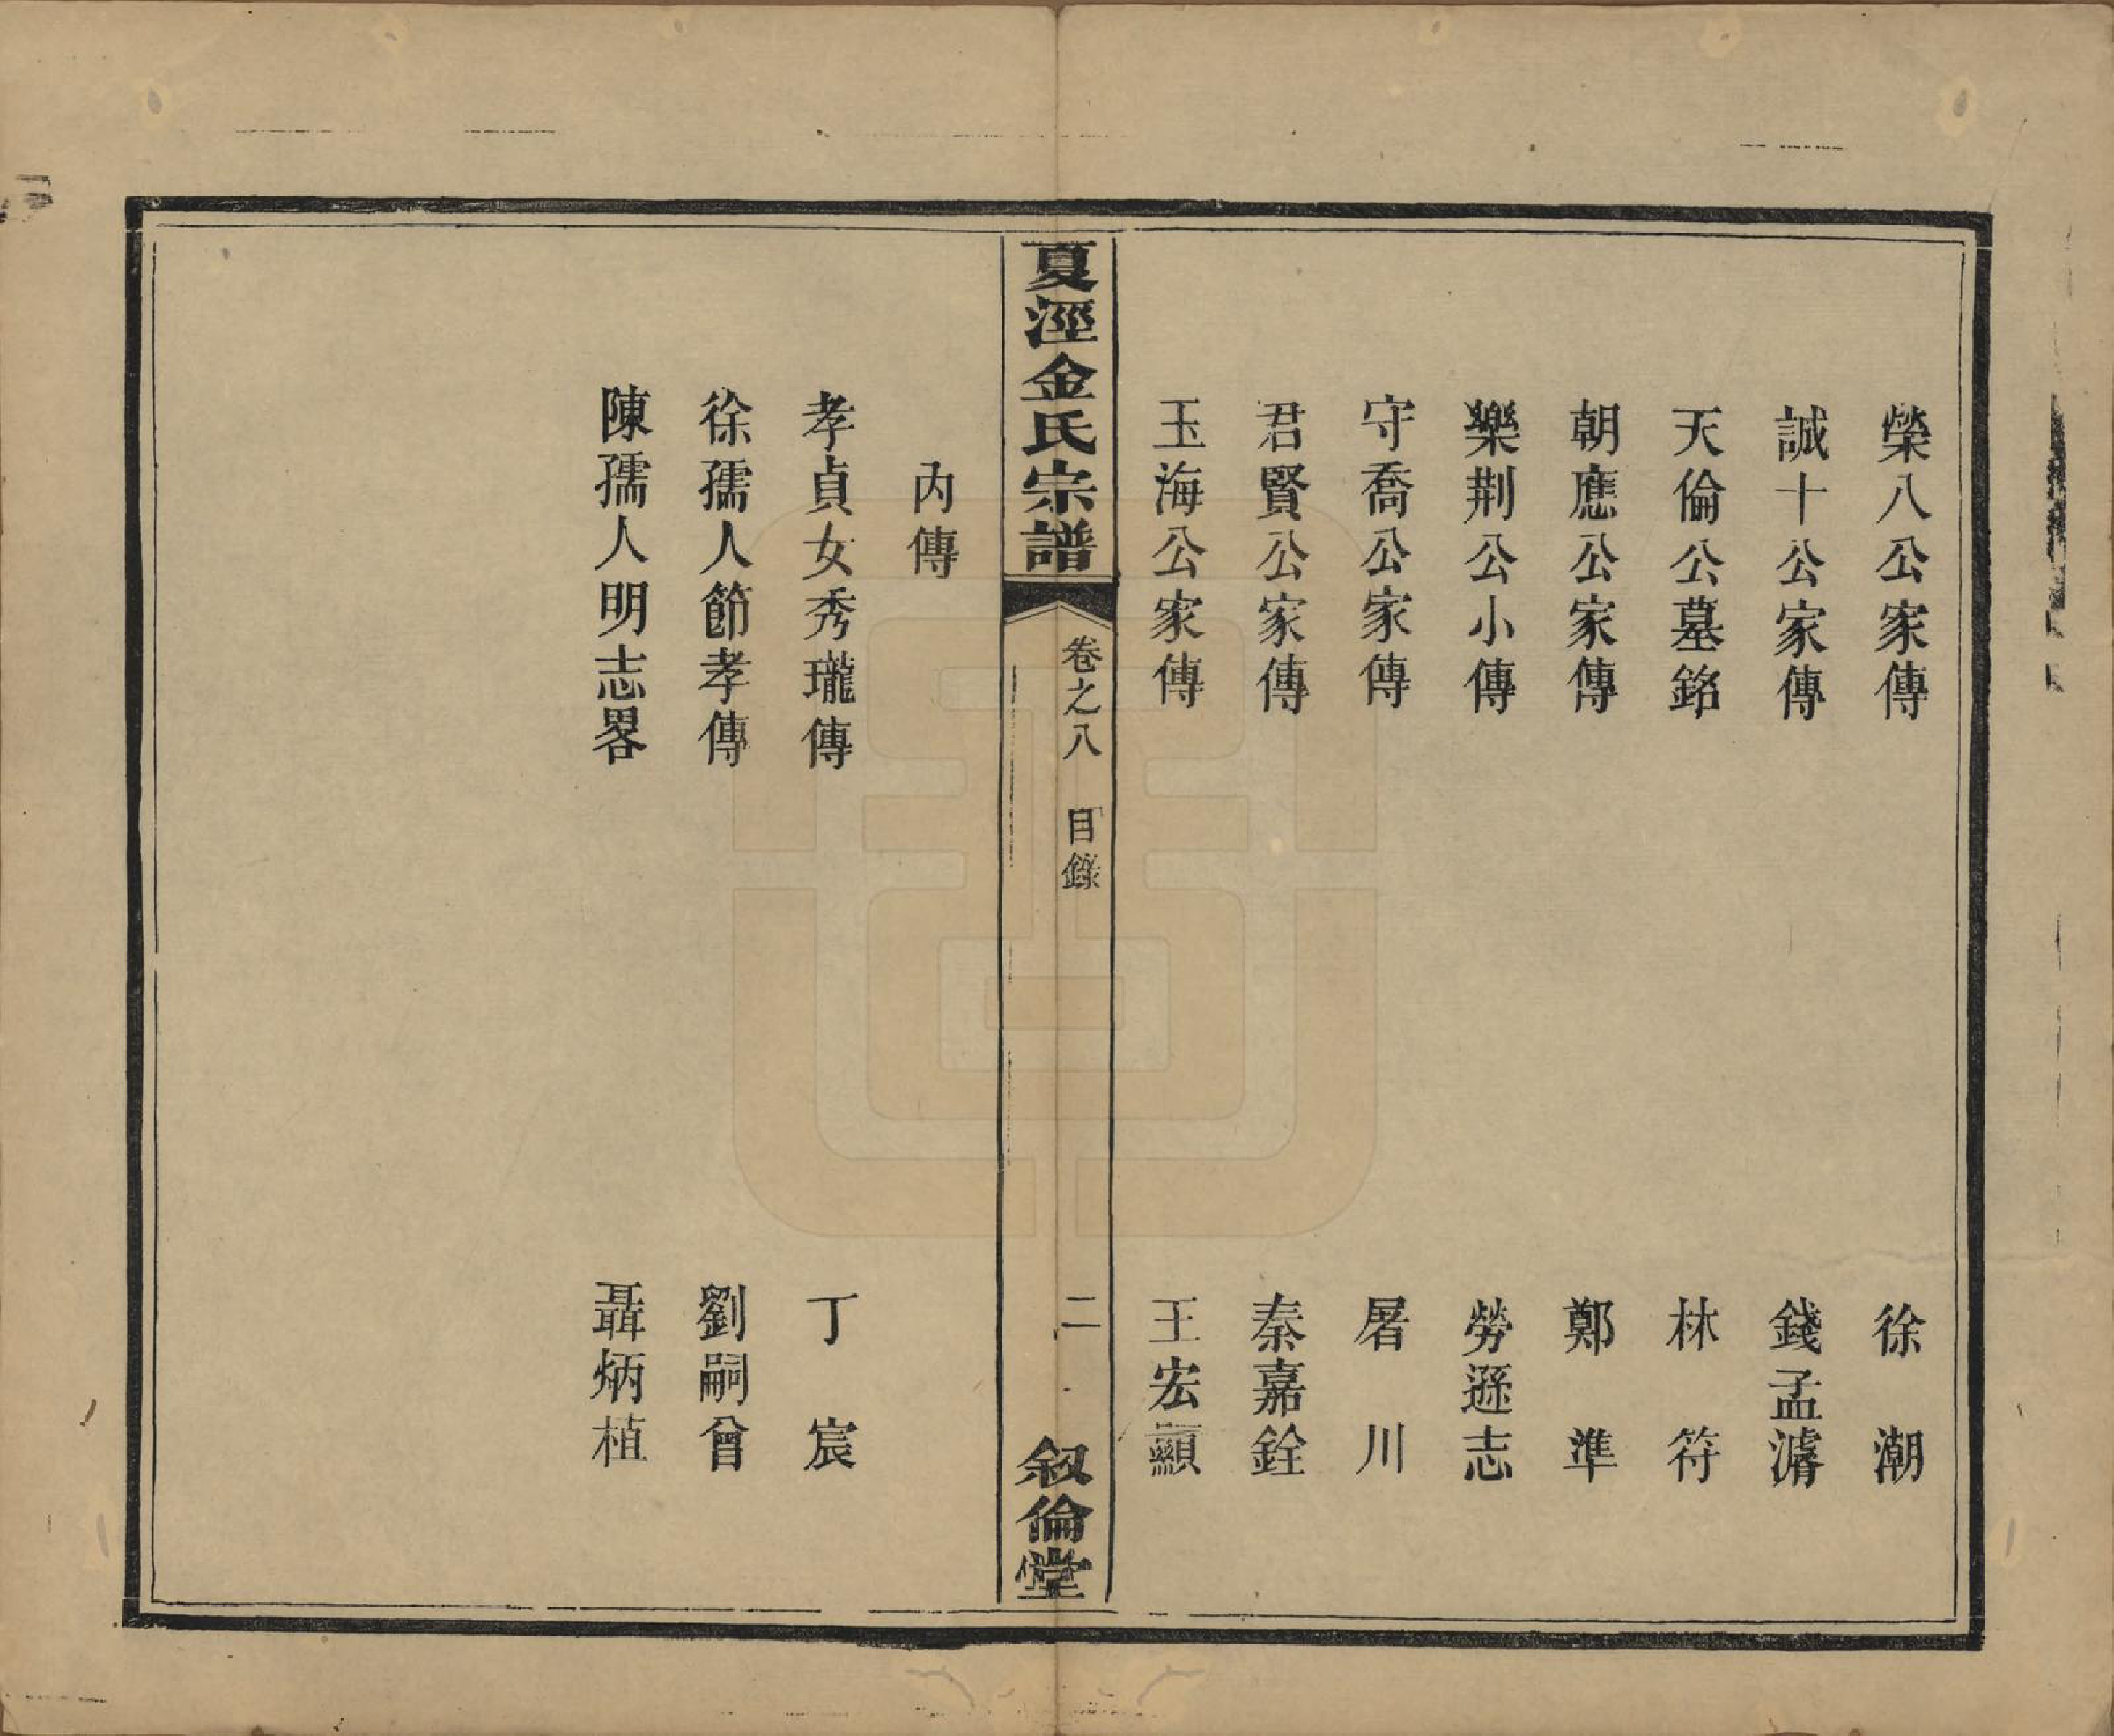 榮八公家傳　徐潮
誠十公家傳　錢孟濬
天倫公墓銘　林符
朝應公家傳　鄭準
樂荆公小傳　勞遜志
守喬公家傳　屠川
君賢公家傳　秦嘉銓
玉海公家傳　王宏顯
夏涇金氏宗譜　卷之八　目錄　二　叙倫堂
內傳
孝貞女秀瓏傳　丁宸
徐孺人節孝傳　劉嗣曾
陳孺人明志畧　聶炳植